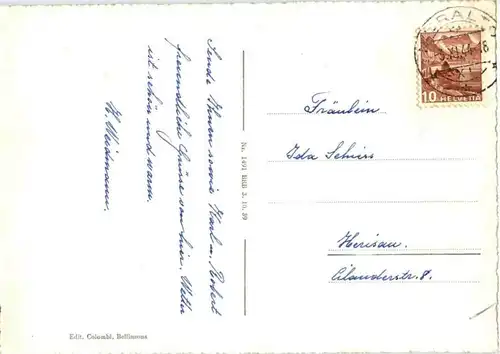 Sende Ihnen sowie Karl u. Robert
freundliche Grüsse von hier. Wetter
ist schön und warm.
H. Weidmann.
No. 1491 BRB 3. 10. 39
Edit. Colombi, Bellinzona
10 HELVETIA
Fräulein
Ida Schiess
Herisau.